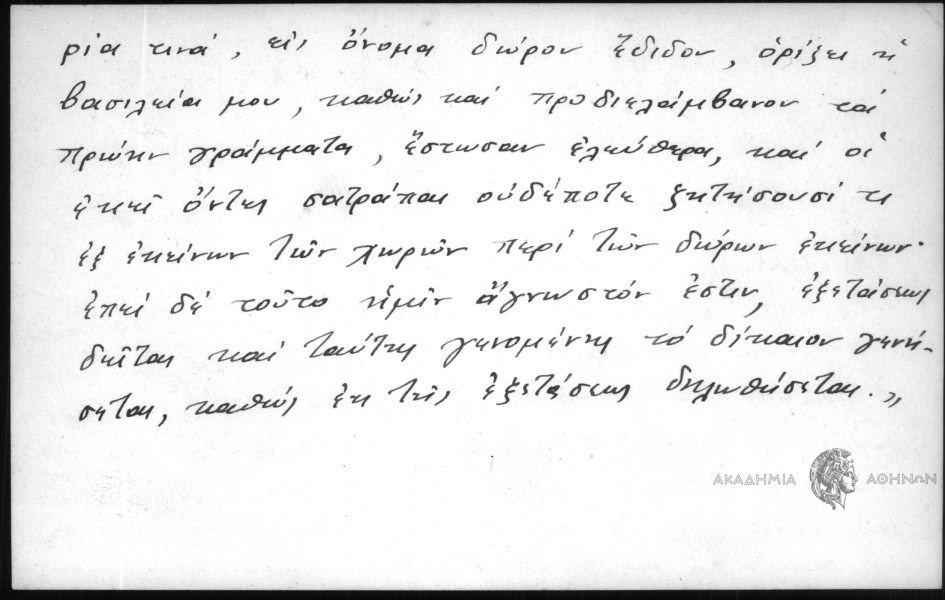 ρία τινά, εἰς ὄνομα δώρον ἔδιδον, ὁρίζει ἡ
βασιλεία μου, καθώς καί προδιελάμβανον τά
πρώην γράμματα, ἔστωσαν ἐλεύθερα, καί οἱ
ἐκεῖ ὄντες σατράπαι οὐδέποτε ζητήσουσί τι
ἐξ ἐκείνων τῶν χωριῶν περί τῶν δώρων ἐκείνων·
ἐπεί δέ τοῦτο ἡμῖν ἄγνωστόν ἐστιν, ἐξετάσεως
δεῖται καί ταύτης γενομένης τό δίκαιον γενή-
σεται, καθώς ἐκ τῆς ἐξετάσεως δηλωθήσεται.„
ΑΚΑΔΗΜΙΑ ΑΘΗΝΩΝ